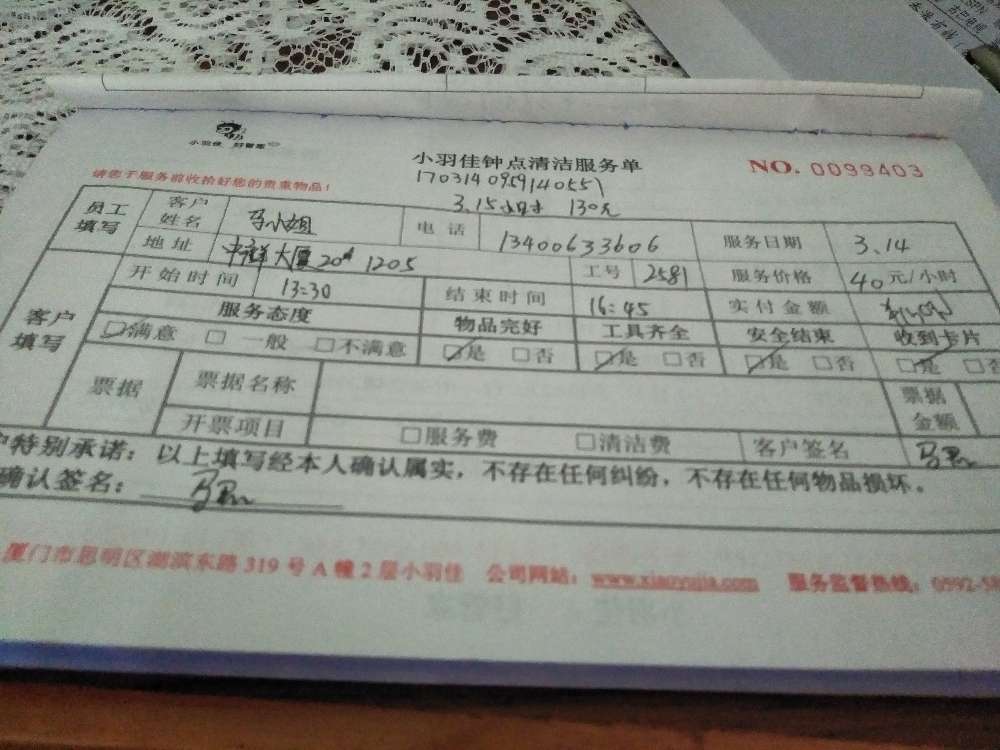 小羽佳 好管家
小羽佳钟点清洁服务单
NO. 0099403
请您于服务前收拾好您的贵重物品!
1703140959140551
3.15小时 130元
员工填写 客户姓名 马小姐 电话 13400633606 服务日期 3.14
地址 大厦20# 1205 工号 2581 服务价格 40元/小时
客户填写 开始时间 13:30 结束时间 16:45 实付金额
服务态度 物品完好 工具齐全 安全结束 收到卡片
☑满意 □一般 □不满意 ☑是 □否 ☑是 □否 ☑是 □否 ☑是 □否
票据 票据名称 票据金额
开票项目 □服务费 □清洁费 客户签名
户特别承诺:以上填写经本人确认属实,不存在任何纠纷,不存在任何物品损坏。
确认签名:
厦门市思明区湖滨东路 319 号 A 幢 2 层小羽佳 公司网站:www.xiaoyujia.com 服务监督热线:0592-58